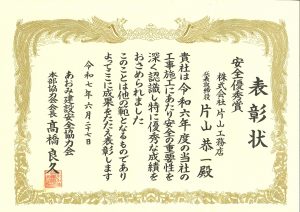 表彰状
安全優秀賞
株式会社 片山工務店
代表取締役 片山恭一殿
貴社は令和六年度の当社の
工事施工にあたり安全の重要性を
深く認識し特に優秀な成績を
おさめられました
このことは他の範となるものであり
よってここに成果をたたえ表彰します
令和七年六月二十七日
あおみ建設安全協力会
本部協力会会長 髙橋良久